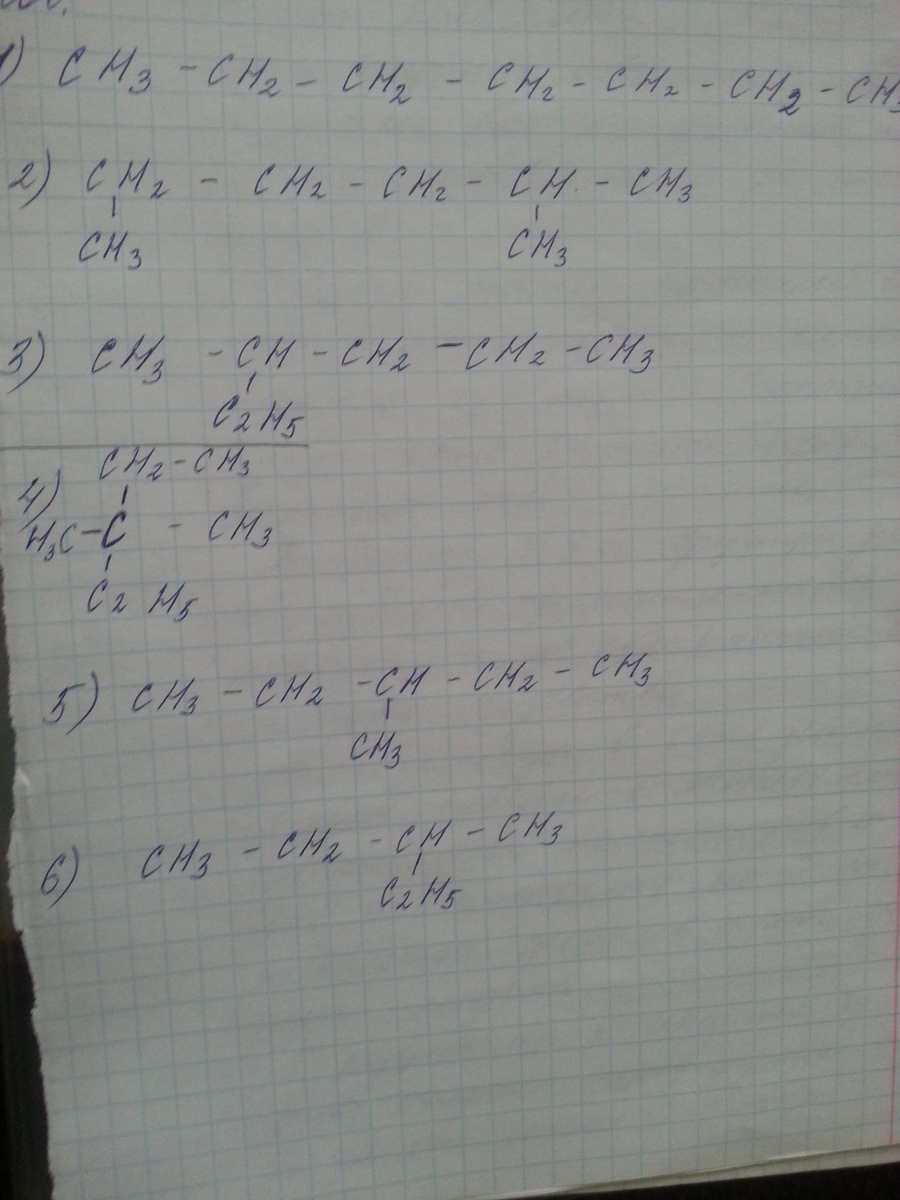 1) CH3 - CH2 - CH2 - CH2 - CH2 - CH2 - CH3
2) CH2 - CH2 - CH2 - CH - CH3
CH3 CH3
3) CH3 - CH - CH2 - CH2 - CH3
C2H5
CH2 - CH3
4) H3C - C - CH3
C2H5
5) CH3 - CH2 - CH - CH2 - CH3
CH3
6) CH3 - CH2 - CH - CH3
C2H5